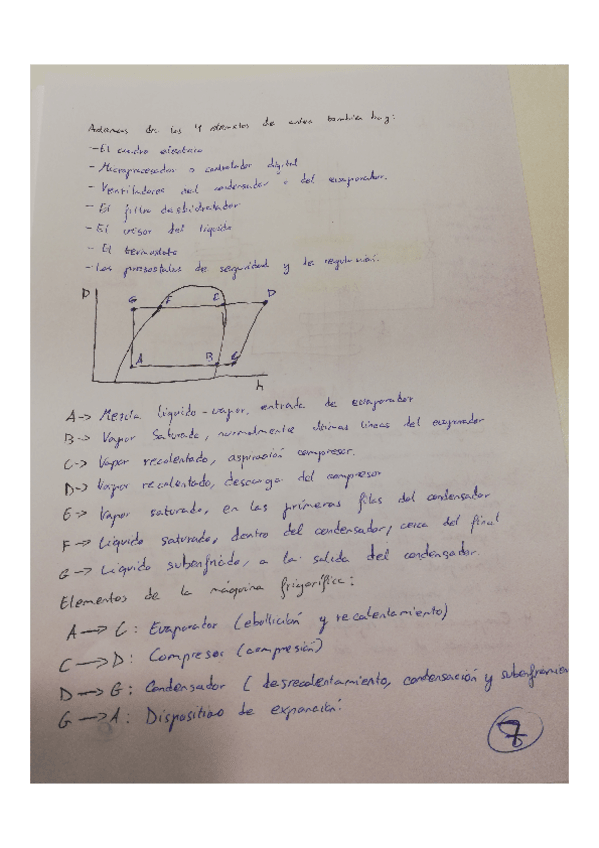 Ademas de los 4 elementos de antes tambien hay:
- El cuadro electrico
- Microprocesador o controlador digital
- Ventiladores del condensador o del evaporador.
- El filtro deshidratador
- El visor del líquido
- El termostato
- Los presostatos de seguridad y de regulación.
P
G F E D
A B C
h
A -> Mezcla líquido-vapor, entrada de evaporador
B -> Vapor saturado, normalmente últimas líneas del evaporador
C -> Vapor recalentado, aspiración compresor.
D -> Vapor recalentado, descarga del compresor
E -> Vapor saturado, en las primeras filas del condensador
F -> Líquido saturado, dentro del condensador, cerca del final
G -> Líquido subenfriado, a la salida del condensador.
Elementos de la máquina frigorífica:
A -> C: Evaporador (ebollición y recalentamiento)
C -> D: Compresor (compresión)
D -> G: Condensador (desrecalentamiento, condensación y subenfriamien
G -> A: Dispositivo de expansión.